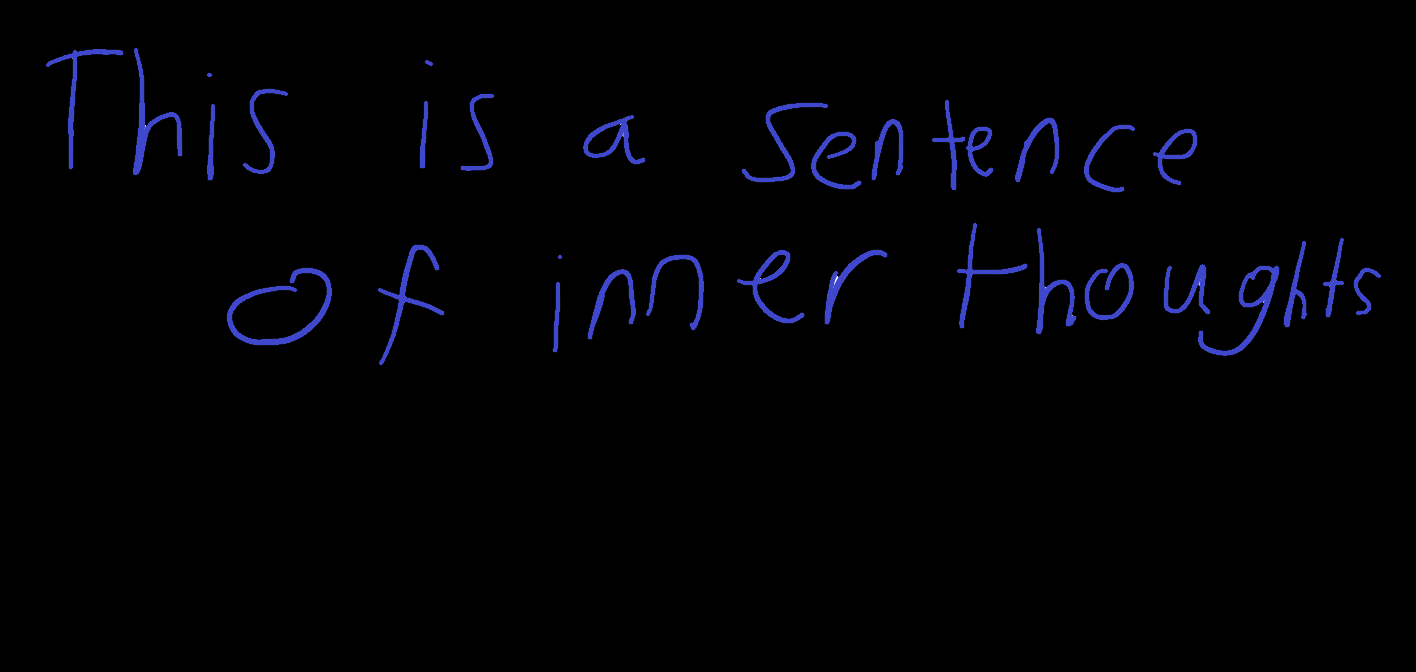 This is a sentence
of inner thoughts